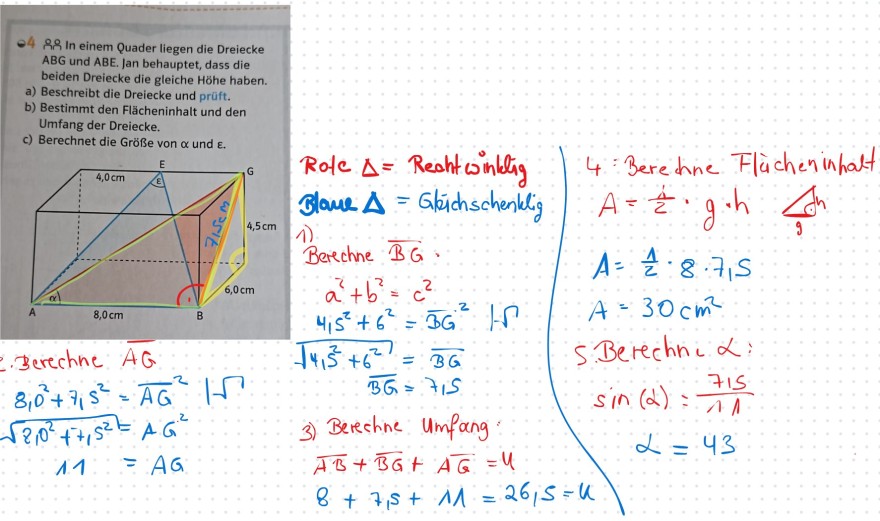 4 In einem Quader liegen die Dreiecke
ABG und ABE. Jan behauptet, dass die
beiden Dreiecke die gleiche Höhe haben.
a) Beschreibt die Dreiecke und prüft.
b) Bestimmt den Flächeninhalt und den
Umfang der Dreiecke.
c) Berechnet die Größe von α und ε.
E
G
4,0 cm
ε
7,5cm
4,5 cm
6,0 cm
α
A
8,0 cm
B
2. Berechne AG
8,0² + 7,5² = AG² |√
√8,0² + 7,5² = AG²
11 = AG
Rote Δ = Rechtwinklig
Blaue Δ = Gleichschenklig
1)
Berechne BG.
a² + b² = c²
4,5² + 6² = BG² |√
√4,5² + 6² = BG
BG = 7,5
3) Berechne Umfang:
AB + BG + AG = u
8 + 7,5 + 11 = 26,5 = u
4: Berechne Flächeninhalt
A = 1/2 · g · h
h
g
A = 1/2 · 8 · 7,5
A = 30 cm²
5. Berechne α:
sin (α) = 7,5/11
α = 43